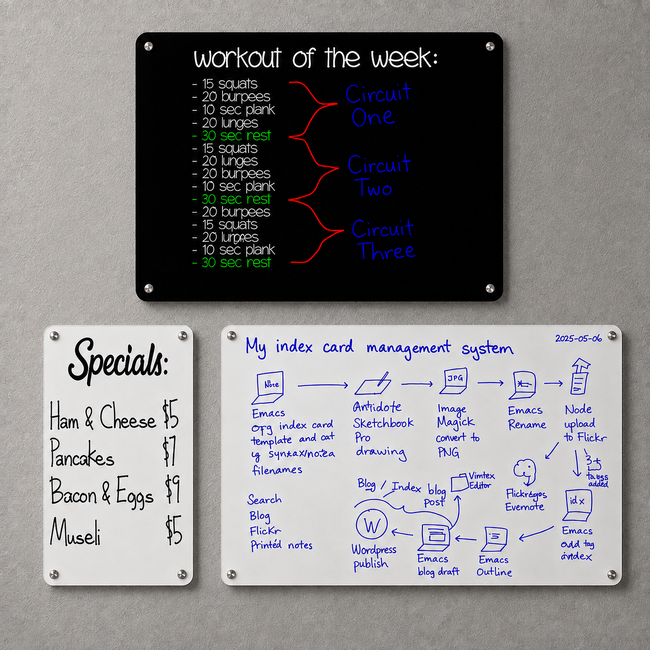 workout of the week:
- 15 squats
- 20 burpees
- 10 sec plank
- 20 lunges
- 30 sec rest
- 15 squats
- 20 lunges
- 20 burpees
- 10 sec plank
- 30 sec rest
- 20 burpees
- 15 squats
- 20 lunges
- 10 sec plank
- 30 sec rest
Circuit
One
Circuit
Two
Circuit
Three
Specials:
Ham & Cheese $5
Pancakes $7
Bacon & Eggs $9
Museli $5
My index card management system
2025-05-06
Note
Emacs
org index card
template and cat
filenames
Antidote
Sketchbook
Pro
drawing
JPG
Image
Magick
convert to
PNG
Emacs
Rename
Node
upload
to Flickr
3+
tags
added
idx
Emacs
add tag
index
Evernote
Emacs
Outline
Emacs
blog draft
Vimtex
Editor
Blog / Index blog
post
W
Wordpress
publish
Search
Blog
Flickr
Printed notes